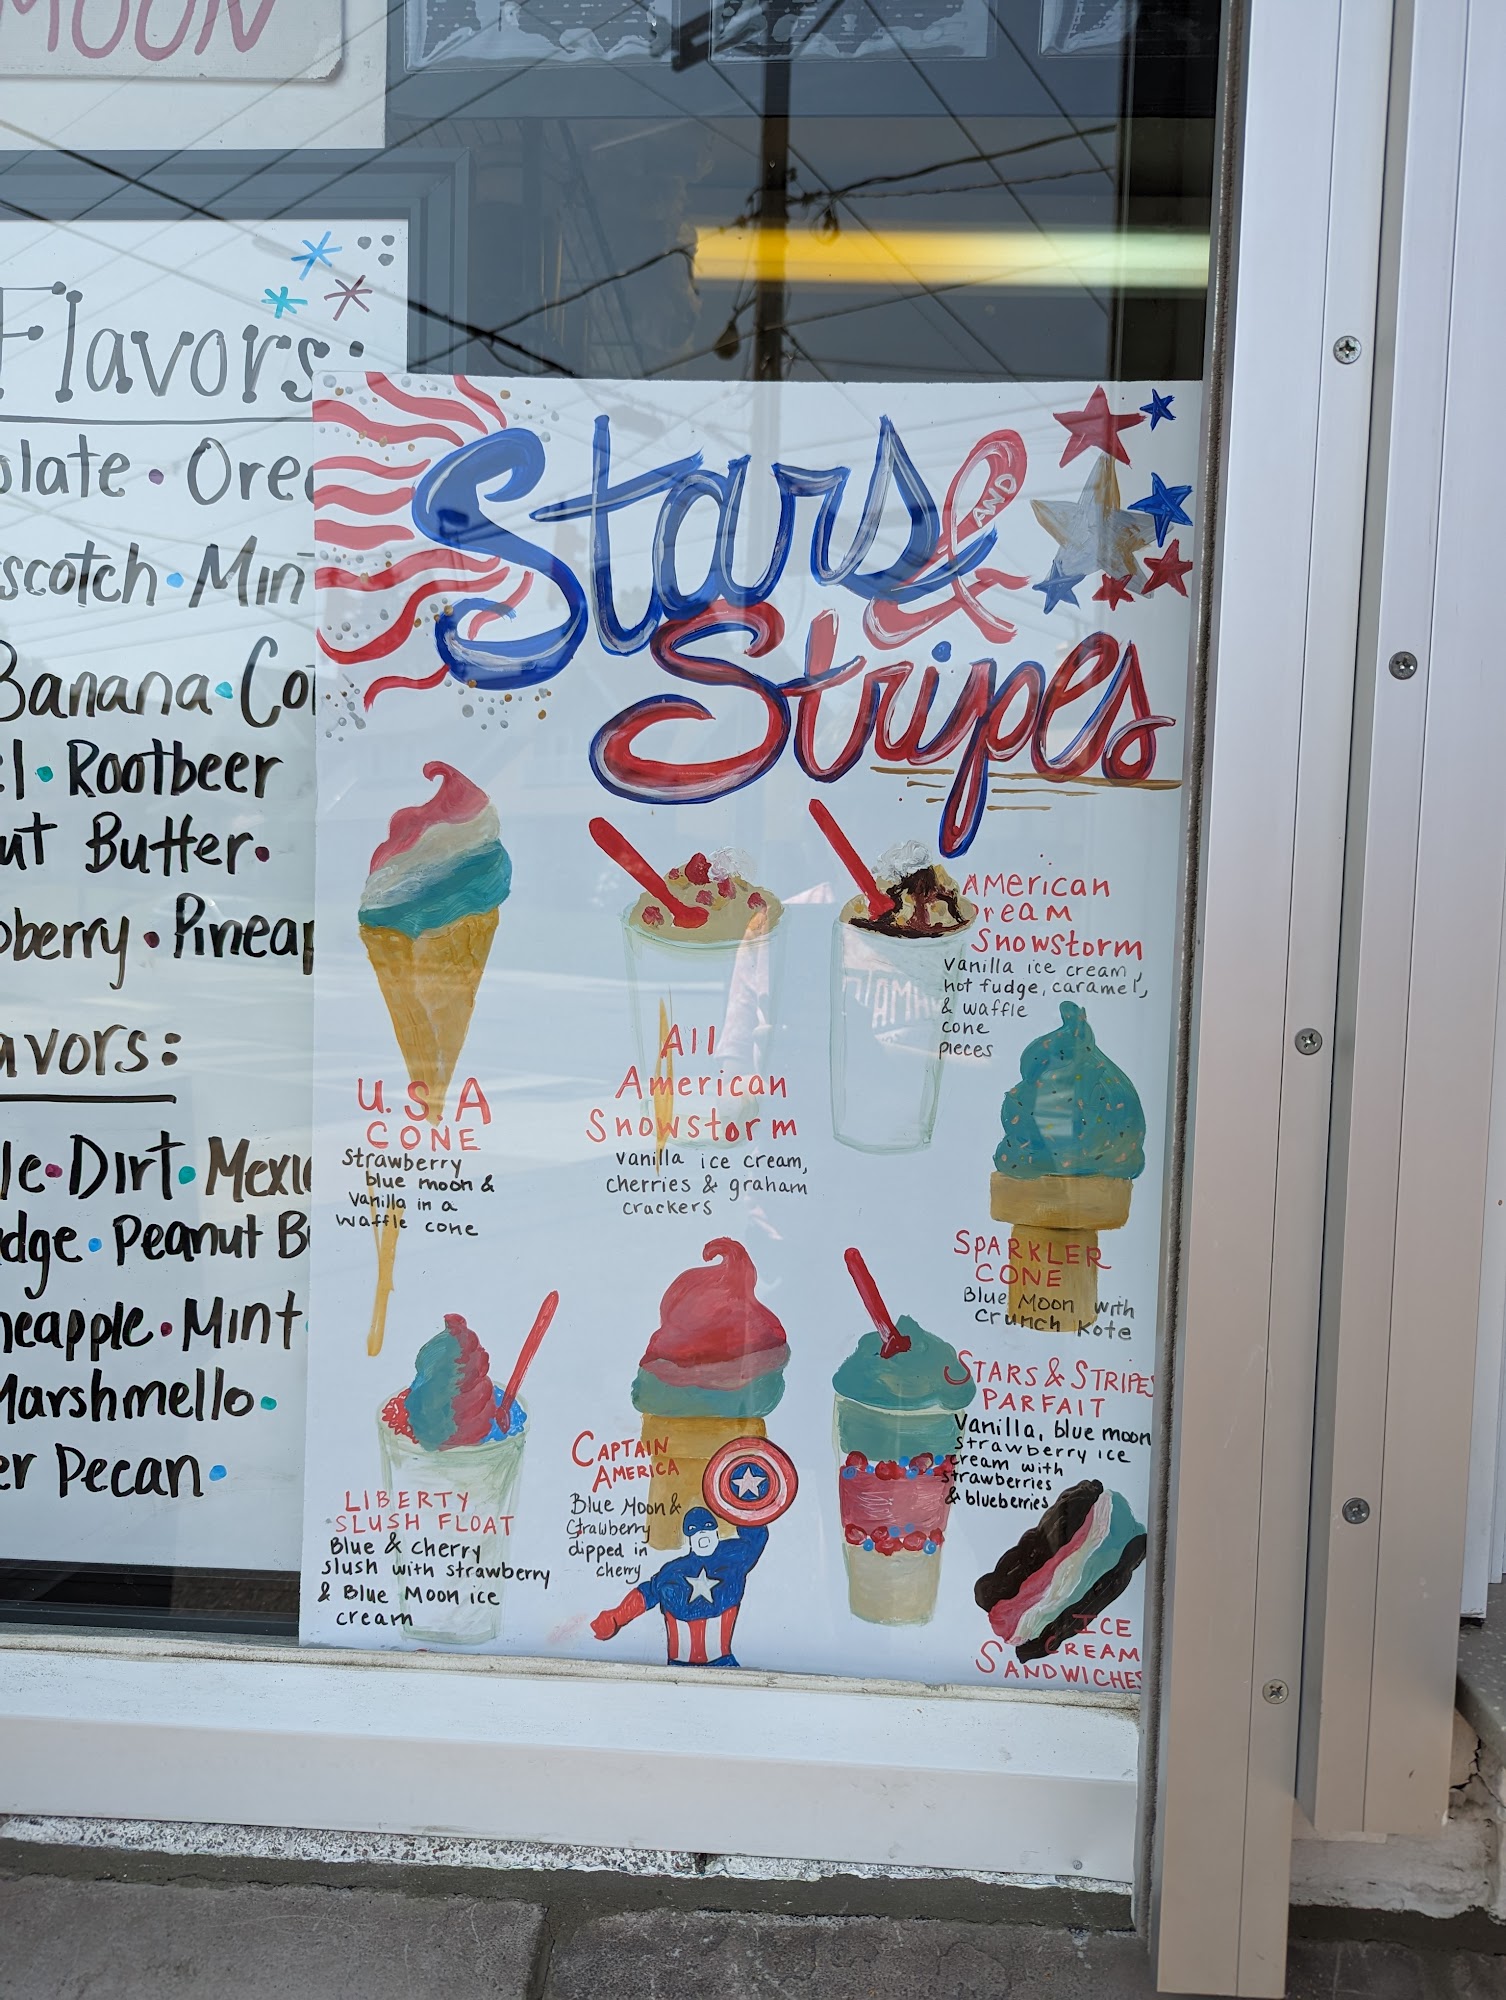 MOON
Flavors:
olate • Ore
scotch • Min
Banana • Co
el • Rootbeer
ut Butter •
berry • Pineap
avors:
le • Dirt • Mexi
dge • Peanut B
neapple • Mint
Marshmello •
er Pecan •
Stars & AND
Stripes
U.S.A
CONE
Strawberry
blue moon &
Vanilla in a
waffle cone
All
American
Snowstorm
vanilla ice cream,
cherries & graham
crackers
American
Dream
Snowstorm
Vanilla ice cream,
hot fudge, caramel,
& waffle
cone
pieces
SPARKLER
CONE
Blue Moon with
Crunch Kote
LIBERTY
SLUSH FLOAT
Blue & cherry
slush with strawberry
& Blue Moon ice
cream
CAPTAIN
AMERICA
Blue Moon &
Strawberry
dipped in
cherry
STARS & STRIPES
PARFAIT
Vanilla, blue moon
strawberry ice
cream with
strawberries
& blueberries
ICE
CREAM
SANDWICHES